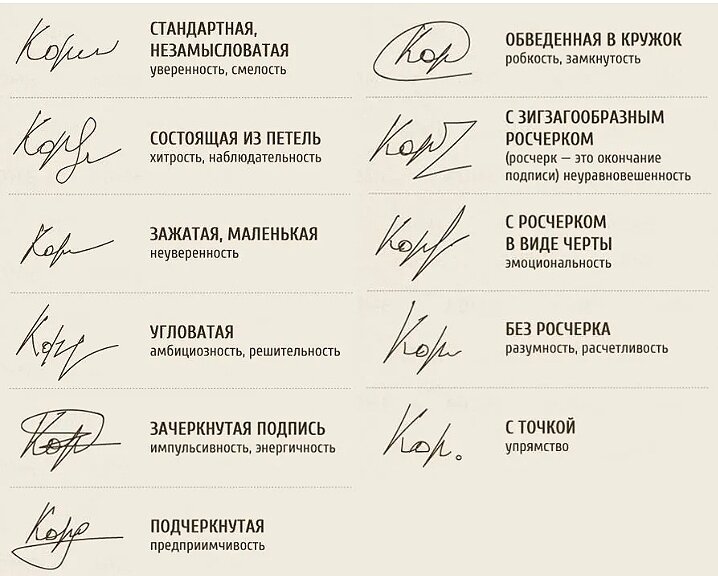 Кори
СТАНДАРТНАЯ,
НЕЗАМЫСЛОВАТАЯ
уверенность, смелость
СОСТОЯЩАЯ ИЗ ПЕТЕЛЬ
хитрость, наблюдательность
ЗАЖАТАЯ, МАЛЕНЬКАЯ
неуверенность
УГЛОВАТАЯ
амбициозность, решительность
Кор
ЗАЧЕРКНУТАЯ ПОДПИСЬ
импульсивность, энергичность
ПОДЧЕРКНУТАЯ
предприимчивость
Кор
ОБВЕДЕННАЯ В КРУЖОК
робкость, замкнутость
С ЗИГЗАГООБРАЗНЫМ
РОСЧЕРКОМ
(росчерк — это окончание
подписи) неуравновешенность
С РОСЧЕРКОМ
В ВИДЕ ЧЕРТЫ
эмоциональность
БЕЗ РОСЧЕРКА
разумность, расчетливость
Кор.
С ТОЧКОЙ
упрямство